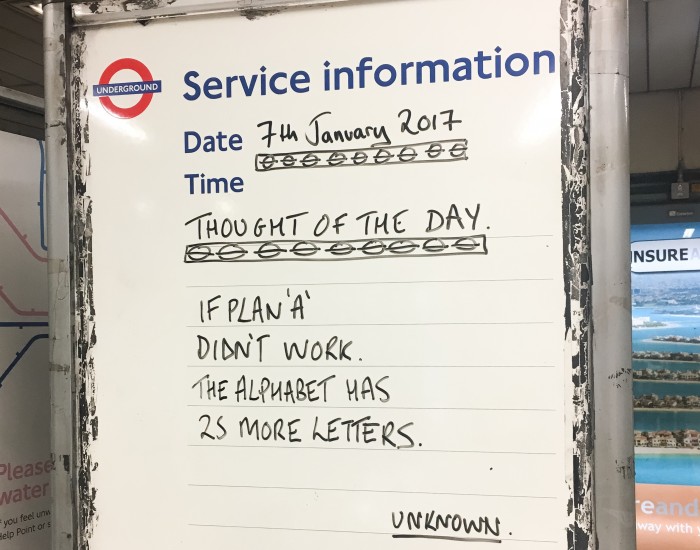 UNDERGROUND
Service information
Date 7th January 2017
Time
THOUGHT OF THE DAY.
IF PLAN 'A'
DIDN'T WORK.
THE ALPHABET HAS
25 MORE LETTERS.
UNKNOWN.
Please
water
if you feel
Help Point or
INSURE